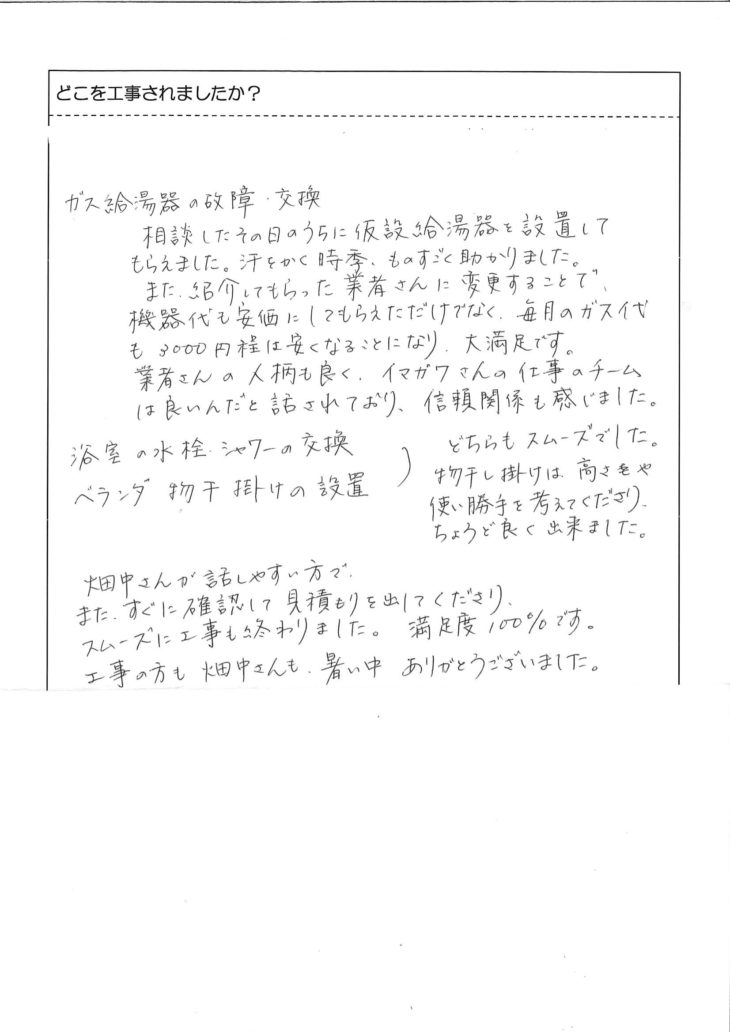 どこを工事されましたか？
ガス給湯器の故障・交換
相談したその日のうちに仮設給湯器を設置して
もらえました。汗をかく時季、ものすごく助かりました。
また、紹介してもらった業者さんに変更することで、
機器代も安価にしてもらえただけでなく、毎月のガス代
も3000円程は安くなることになり、大満足です。
業者さんの人柄も良く、イマガワさんの仕事のチーム
は良いんだと話されており、信頼関係も感じました。
浴室の水栓・シャワーの交換
ベランダ 物干掛けの設置
どちらもスムーズでした。
物干し掛けは、高さをや
使い勝手を考えてくださり、
ちょうど良く出来ました。
畑中さんが話しやすい方で、
また、すぐに確認して見積もりを出してくださり、
スムーズに工事も終わりました。 満足度100%です。
工事の方も畑中さんも、暑い中 ありがとうございました。